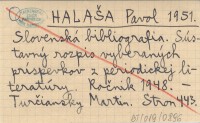 HALAŠA Pavol 1951.
Slovenská bibliografia. Sús-
tavný rozpis vybraných
príspevkov z periodickej li-
teratúry. Ročník 1948. –
Turčiansky Martin. Stron 443.